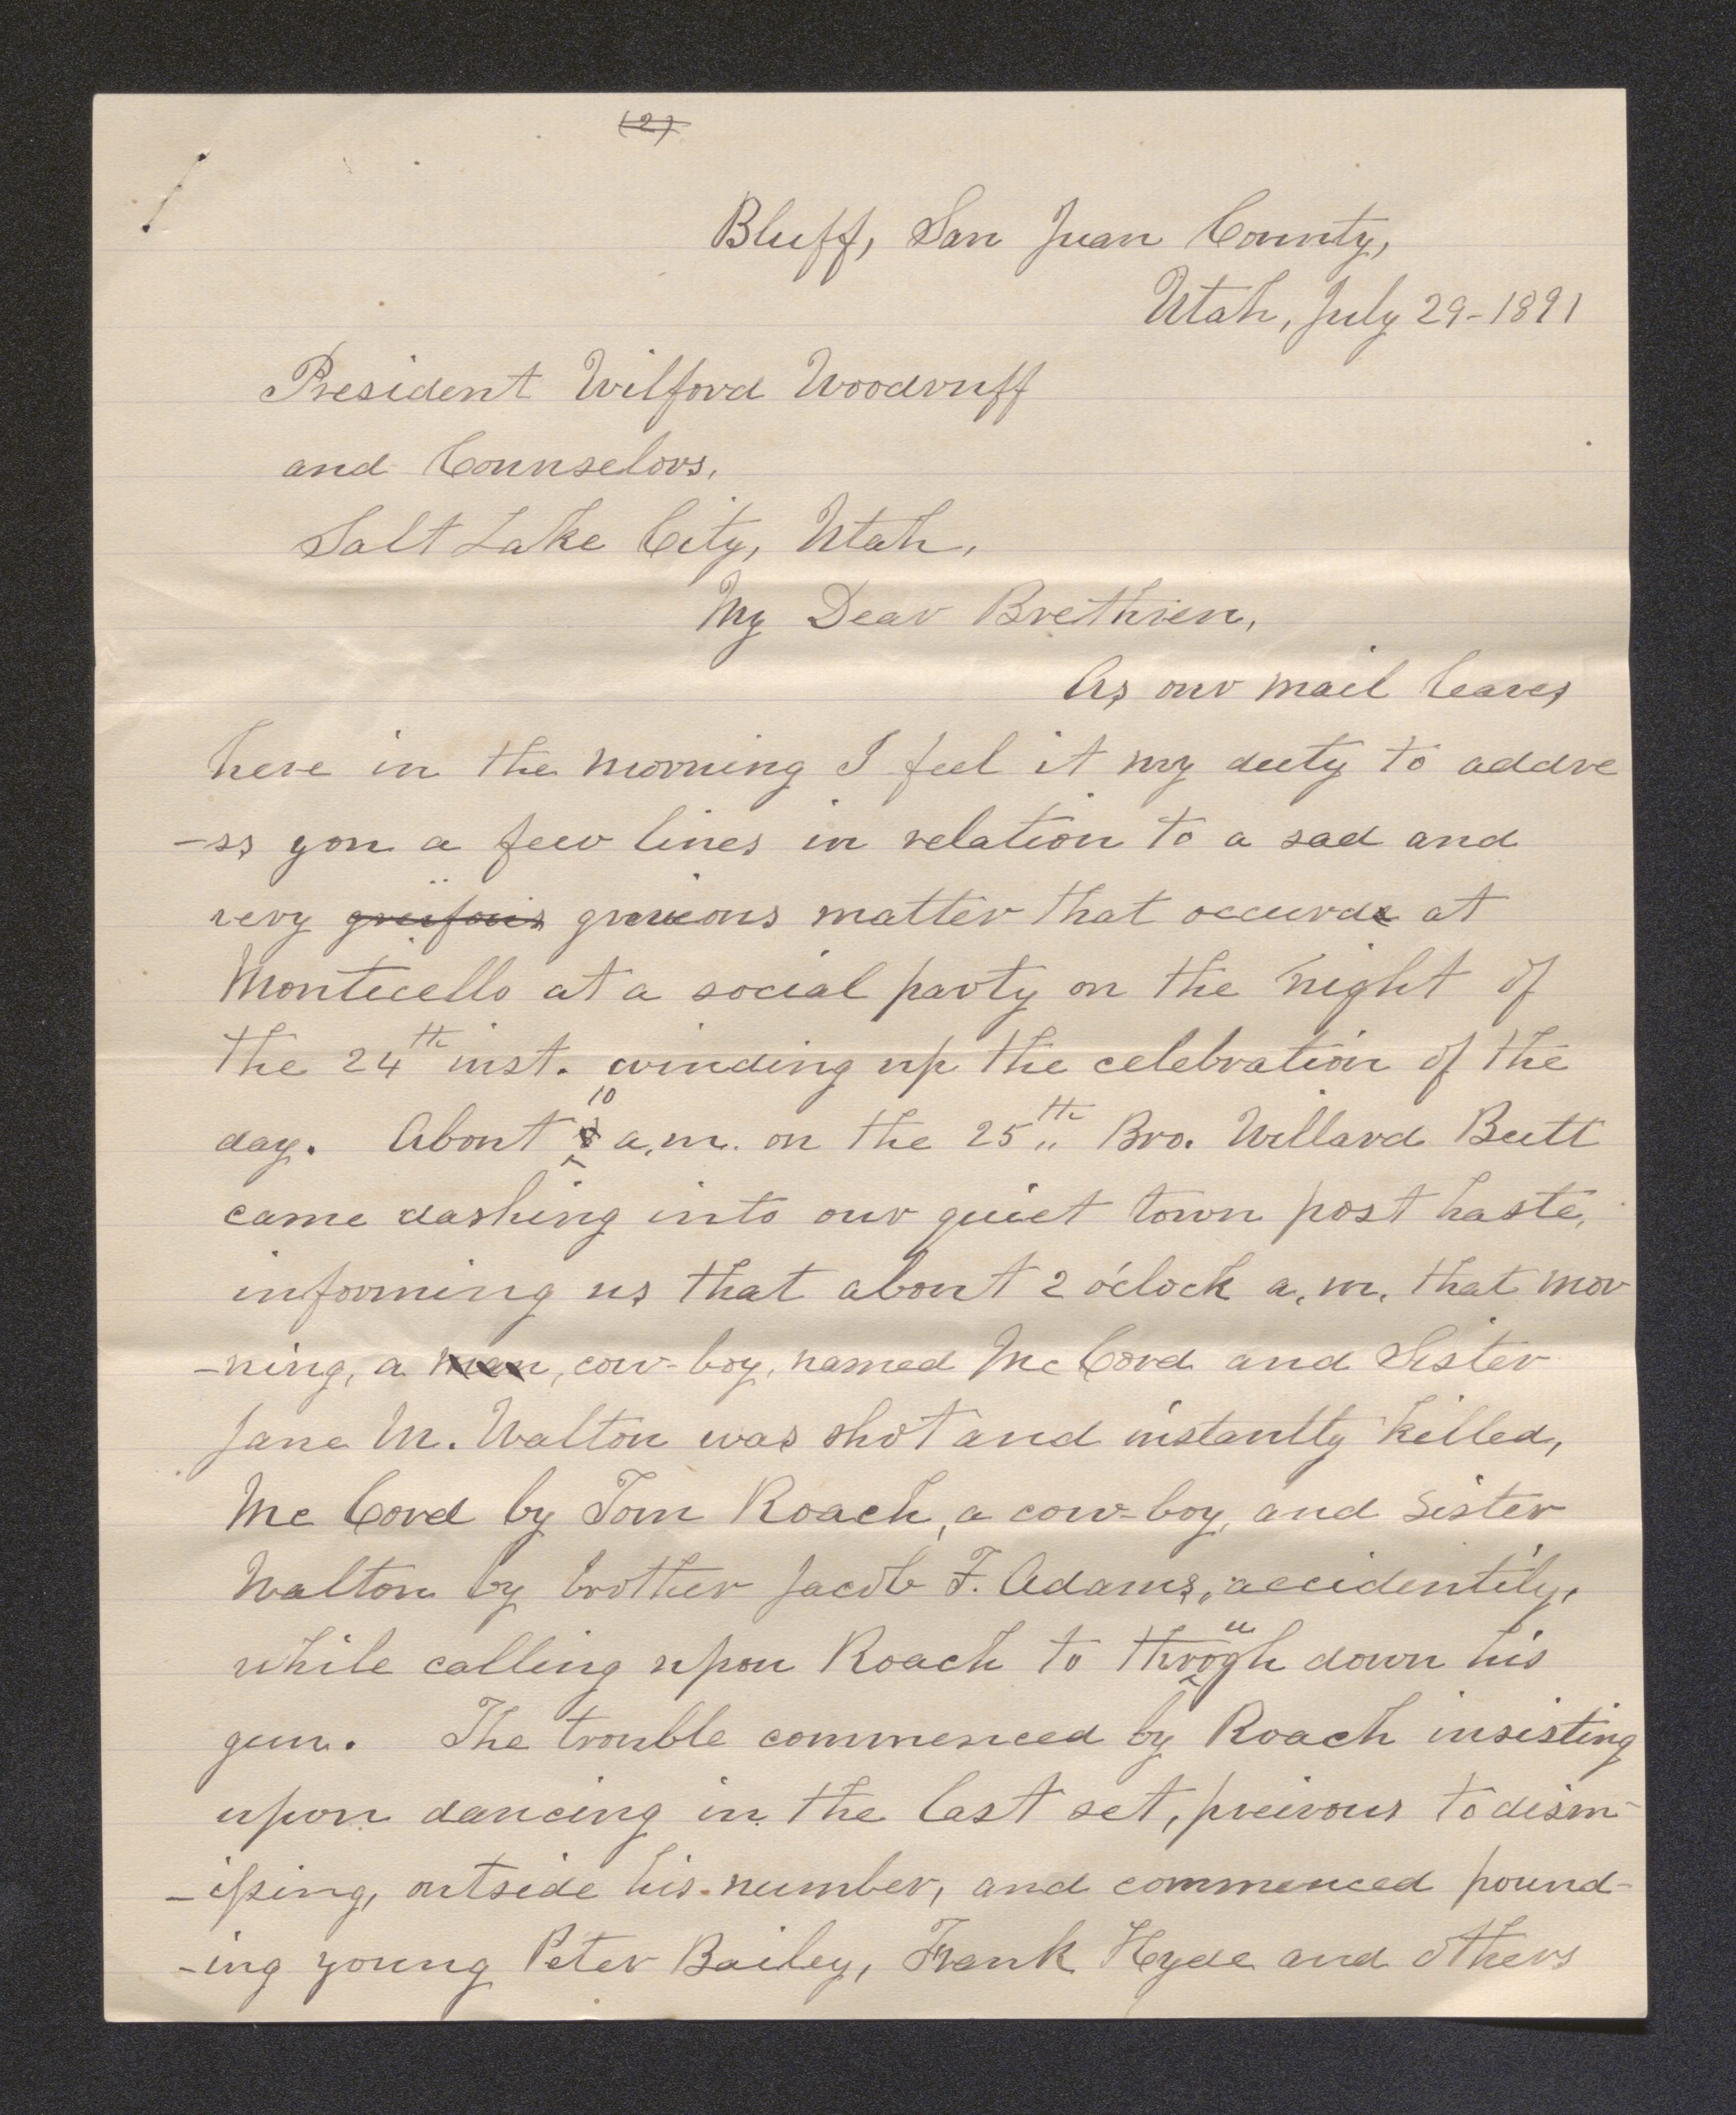 (2)
Bluff, San Juan County,
Utah, July 29-1891
President Wilford Woodruff
and Counselors,
Salt Lake City, Utah,
My Dear Brethren,
As our mail leaves
here in the morning I feel it my duty to addre
-ss you a few lines in relation to a sad and
very greifous grevious matter that occured at
Monticello at a social party on the night of
the 24th inst. winding up the celebration of the
day. About 10 a.m. on the 25th Bro. Willard Butt
came dashing into our quiet town post haste,
informing us that about 2 o'clock a.m. that mor
-ning, a man, cow-boy, named McCord and Sister
Jane M. Walton was shot and instantly killed,
McCord by Tom Roach, a cow-boy, and Sister
Walton by brother Jacob F. Adams, accidentily,
while calling upon Roach to through down his
gun. The trouble commenced by Roach insisting
upon dancing in the last set, preivous to dism-
-issing, outside his number, and commenced pound-
-ing young Peter Bailey, Frank Hyde and others